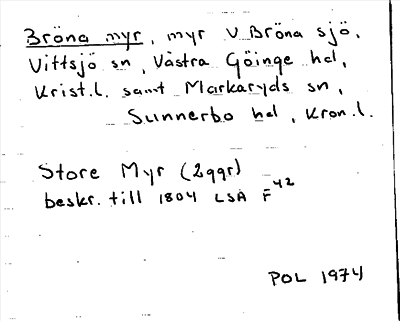 Bröna myr, myr V Bröna sjö,
Vittsjö sn, Västra Göinge hd,
Krist.l. samt Markaryds sn,
Sunnerbo hd, Kron.l.
Store Myr (2ggr)
beskr. till 1804 LSA F42
POL 1974